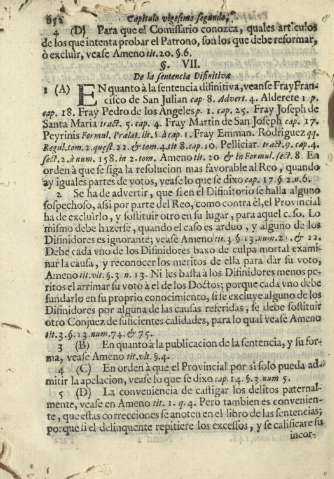 652 Capitulo vigesimo segundo,
4 (D) Para que el Comissario conozca, quales articulos
de los que intenta probar el Patrono, son los que debe reformar,
ò excluir, vease Ameno tit. 20. §. 6.
§. VII.
De la sentencia Difinitiva
1 (A) EN quanto à la sentencia difinitiva, veanse Fray Fran-
cisco de San Julian cap. 8. Advert. 4. Alderete 1. p.
cap. 18. Fray Pedro de los Angeles p. 1. cap. 25. Fray Joseph de
Santa Maria tract. 5. cap. 4. Fray Martin de San Joseph cap. 17.
Peyrinis Formul. Prælat. tit. 5. à cap. 1. Fray Emman. Rodriguez qq.
Regul. tom. 2. quæst. 22. & tom. 4. tit 8. cap. 10. Pelliciar. tract. 9. cap. 4.
sect. 2. à num. 158. in 2. tom. Ameno tit. 20 & in Formul. sect. 8. En
orden à que se siga la resolucion mas favorable al Reo, quando
ay iguales partes de votos, vease lo que se dixo cap. 17. § 2. n. 6.
2 Se ha de advertir, que si en el Difinitorio se halla alguno
sospechoso, assi por parte del Reo, como contra èl, el Provincial
ha de excluirlo, y sostituir otro en su lugar, para aquel caso. Lo
mismo debe hazerse, quando el caso es arduo, y alguno de los
Difinidores es ignorante; vease Ameno tit. 3. §. 13. num. 21. & 22.
Debe cada vno de los Difinidores baxo de culpa mortal exami-
nar la causa, y reconocer los meritos de ella para dar su voto,
Ameno tit. vlt. §. 3. n. 13. Ni les basta à los Difinidores menos pe-
ritos el arrimar su voto à el de los Doctos; porque cada vno debe
fundarlo en su proprio conocimiento, si se excluye alguno de los
Difinidores por alguna de las causas referidas, se debe sostituir
otro Conjuez de suficientes calidades, para lo qual vease Ameno
tit. 3. §. 13. num. 74. & 75.
3 (B) En quanto à la publicacion de la sentencia, y su for-
ma, vease Ameno tit. vlt. §. 4.
4 (C) En orden à que el Provincial por sì solo pueda ad-
mitir la apelacion, vease lo que se dixo cap. 14. §. 3 num 5.
5 (D) La conveniencia de castigar los delitos paternal-
mente, vease en Ameno tit. 1. q. 4. Pero tambien es convenien-
te, que estas correcciones se anoten en el libro de las sentencias;
porque si el delinquente repitiere los excessos, y se calificare su
incor-